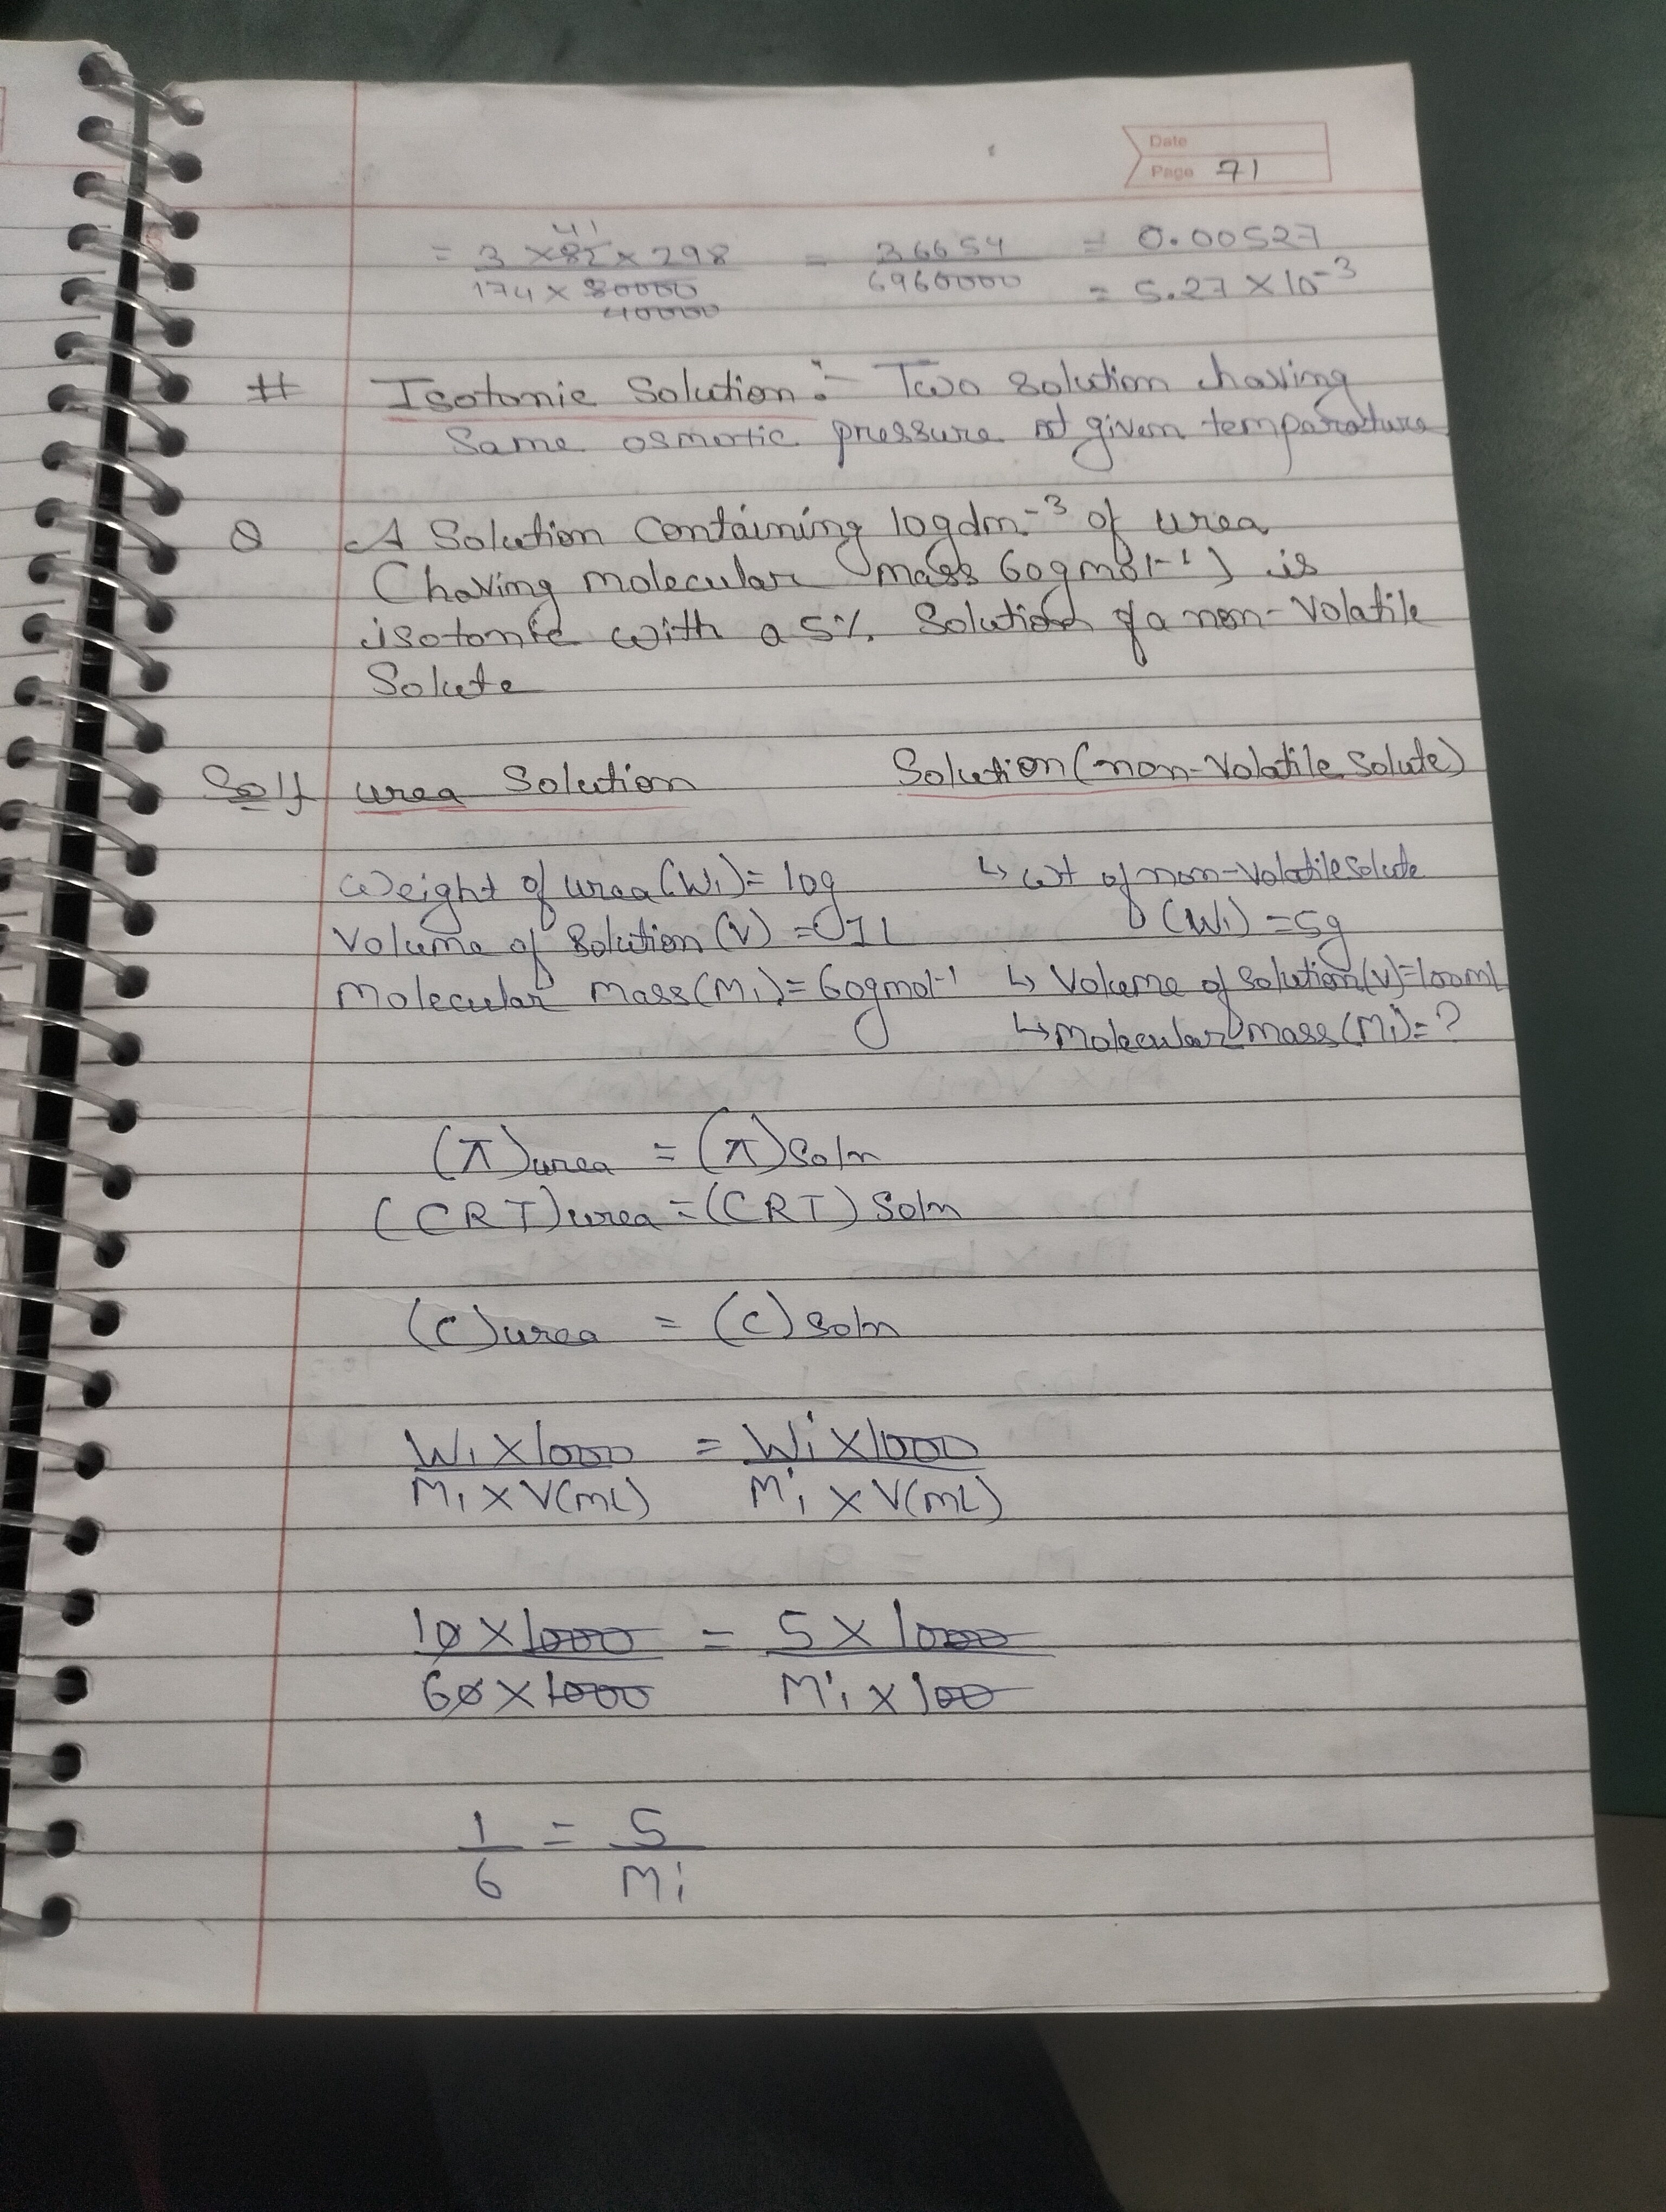 Date
Page 71
= 3 × 82 41 × 298 / 174 × 80000 40000 = 36654 / 6960000 = 0.00527
= 5.27 × 10⁻³
# Isotonic Solution :- Two solution having
Same osmotic pressure at given temparature
Q A Solution containing 10gdm⁻³ of urea
(having molecular mass 60gmol⁻¹) is
isotonic with a 5% Solution of a non-volatile
Solute
Solⁿ urea Solution Solution (non-volatile solute)
Weight of urea (W₁) = 10g ↳ wt of non-volatile solute
(W₁) = 5g
Volume of Solution (V) = 1L
Molecular mass (M₁) = 60gmol⁻¹ ↳ Volume of solution (V) = 100mL
↳ Molecular mass (M₁) = ?
(π)urea = (π)soln
(CRT)urea = (CRT) soln
(C)urea = (C) soln
W₁ × 1000 / M₁ × V(mL) = W'₁ × 1000 / M'₁ × V(mL)
10 × 1000 / 60 × 1000 = 5 × 1000 / M'₁ × 100
1 / 6 = 5 / M₁